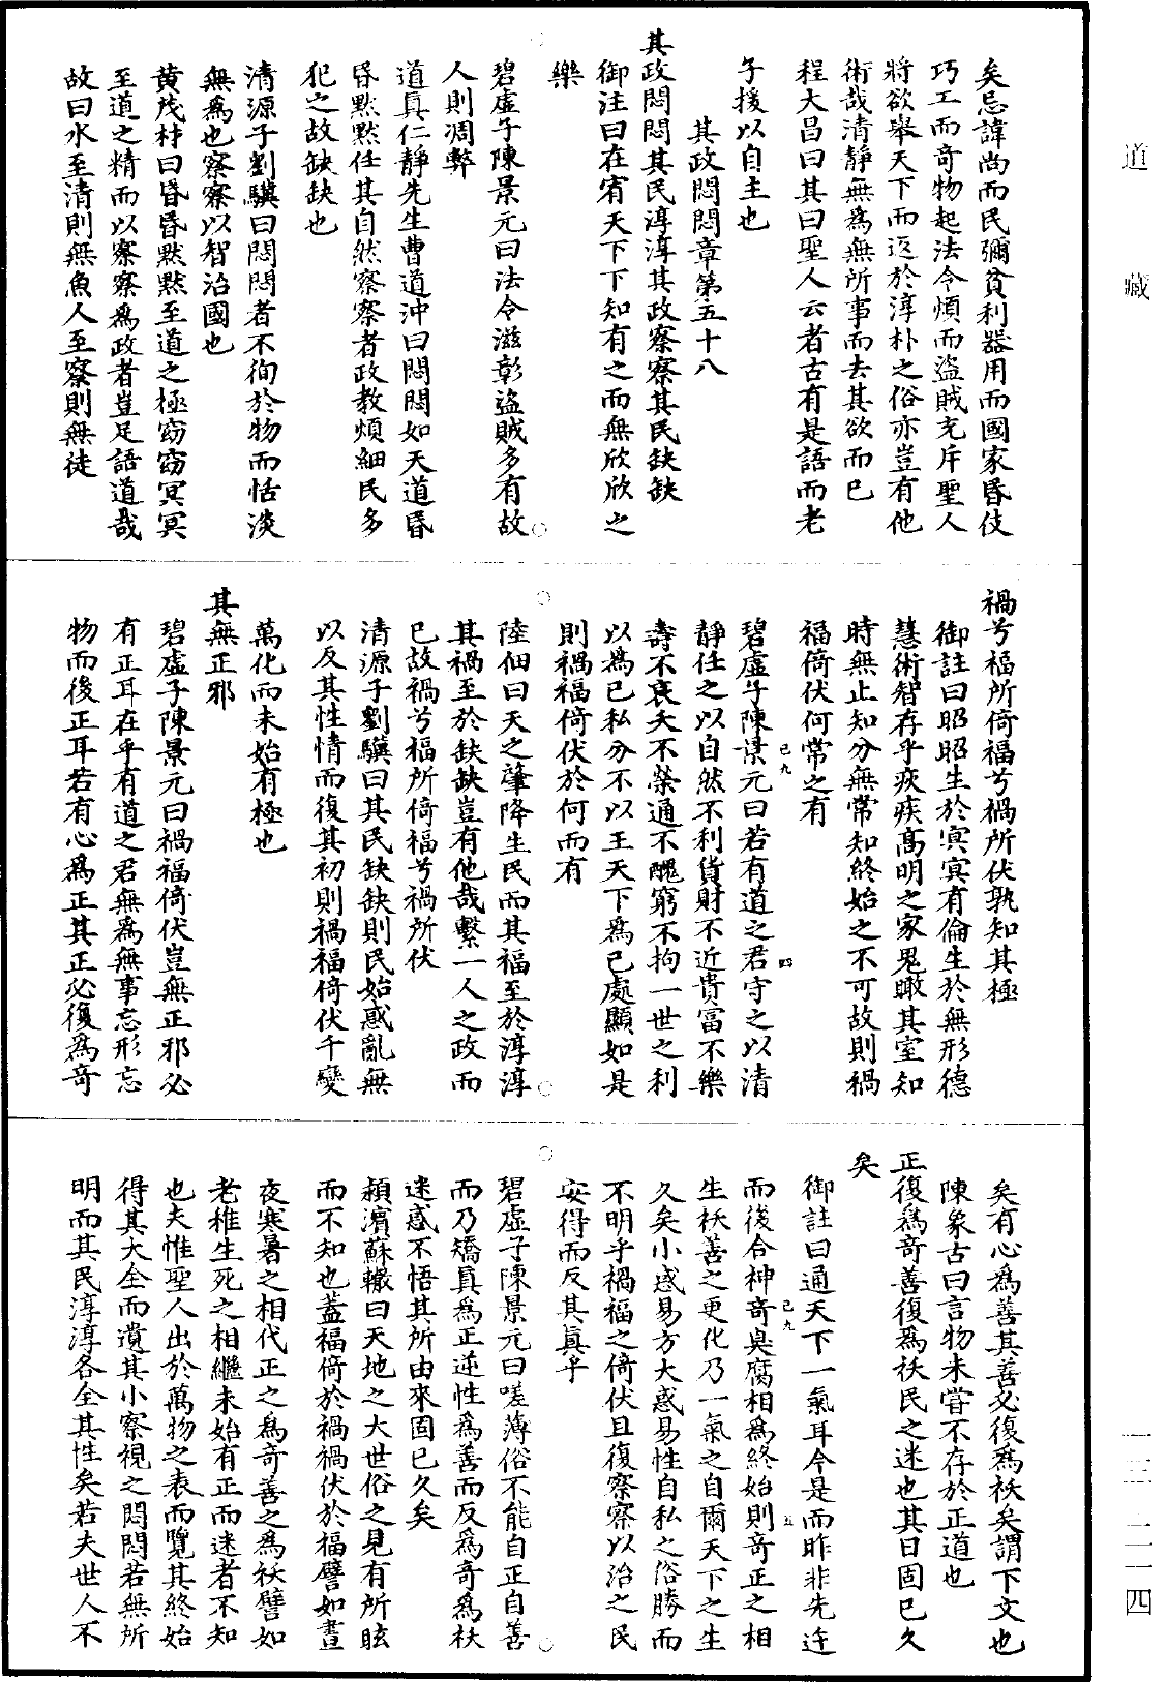 矣忌諱尚而民彌貧利器用而國家昏伎
巧工而奇物起法令煩而盜賊充斥聖人
將欲舉天下而返於淳朴之俗亦豈有他
術哉清靜無為無所事而去其欲而已
程大昌曰其曰聖人云者古有是語而老
子援以自主也
其政悶悶章第五十八
其政悶悶其民淳淳其政察察其民缺缺
御注曰在宥天下下知有之而無欣欣之
樂
碧虛子陳景元曰法令滋彰盜賊多有故
人則凋弊
道真仁靜先生曹道沖曰悶悶如天道昏
昏默默任其自然察察者政教煩細民多
犯之故缺缺也
清源子劉驥曰悶悶者不徇於物而恬淡
無為也察察以智治國也
黃茂材曰昏昏默默至道之極窈窈冥冥
至道之精而以察察為政者豈足語道哉
故曰水至清則無魚人至察則無徒
禍兮福所倚福兮禍所伏孰知其極
御註曰昭昭生於冥冥有倫生於無形德
慧術智存乎疢疾高明之家鬼瞰其室知
時無止知分無常知終始之不可故則禍
福倚伏何常之有
碧虛子陳景元曰若有道之君守之以清
靜任之以自然不利貨財不近貴富不樂
壽不哀夭不榮通不醜窮不拘一世之利
以為己私分不以王天下為己處顯如是
則禍福倚伏於何而有
陸佃曰天之肇降生民而其福至於淳淳
其禍至於缺缺豈有他哉繫一人之政而
已故禍兮福所倚福兮禍所伏
清源子劉驥曰其民缺缺則民始惑亂無
以反其性情而復其初則禍福倚伏千變
萬化而未始有極也
其無正邪
碧虛子陳景元曰禍福倚伏豈無正邪必
有正耳在乎有道之君無為無事忘形忘
物而後正耳若有心為正其正必復為奇
矣有心為善其善必復為祅矣謂下文也
陳象古曰言物未嘗不存於正道也
正復為奇善復為祅民之迷也其日固已久
矣
御註曰通天下一氣耳今是而昨非先迕
而後合神奇臭腐相為終始則奇正之相
生祅善之更化乃一氣之自爾天下之生
久矣小惑易方大惑易性自私之俗勝而
不明乎禍福之倚伏且復察察以治之民
安得而反其真乎
碧虛子陳景元曰嗟薄俗不能自正自善
而乃矯真為正逆性為善而反為奇為祅
迷惑不悟其所由來固已久矣
潁濱蘇轍曰天地之大世俗之見有所眩
而不知也蓋福倚於禍禍伏於福譬如晝
夜寒暑之相代正之為奇善之為祅譬如
老稚生死之相繼未始有正而迷者不知
也夫惟聖人出於萬物之表而覽其終始
得其大全而遺其小察視之悶悶若無所
明而其民淳淳各全其性矣若夫世人不
己九
四
己九
五
道藏
一三—二一四